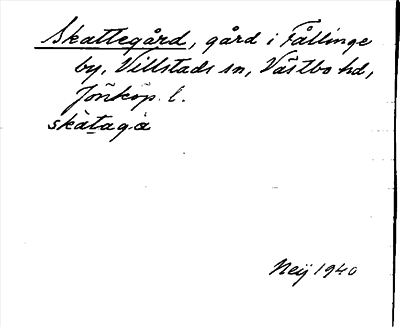 Skattegård, gård i Fållinge
by, Villstads sn, Västbo hd,
Jönköp. l.
skàtagà
Neij 1940